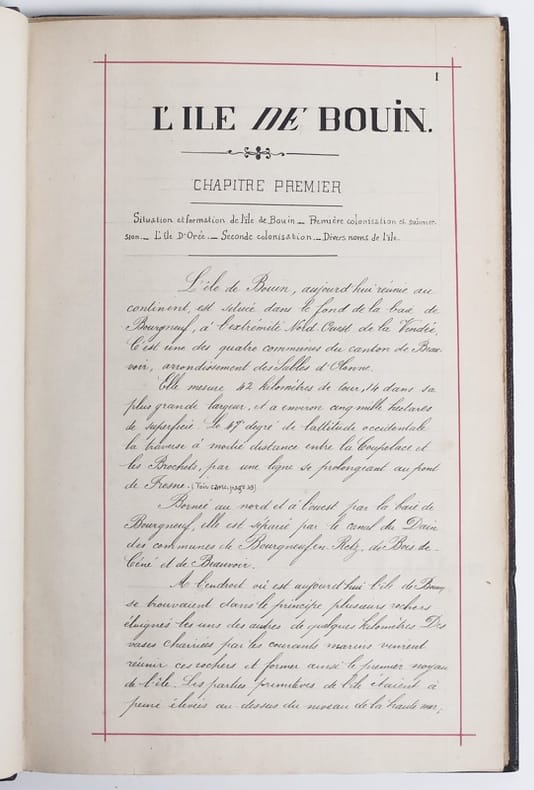 1
L'ILE DE BOUIN.
CHAPITRE PREMIER
Situation et formation de l'île de Bouin _ Première colonisation et submer-
sion._ L'Ile D'Orée._ Seconde colonisation._ Divers noms de l'île.
L'île de Bouin, aujourd'hui réunie au
continent, est située dans le fond de la baie de
Bourgneuf, à l'extrémité Nord Ouest de la Vendée.
C'est une des quatre communes du canton de Beau-
voir, arrondissement des Sables d'Olonne.
Elle mesure 42 kilomètres de tour, 14 dans sa
plus grande largeur, et a environ cinq mille hectares
de superficie. Le 47e degré de lattitude occidentale
la traverse à moitié distance entre la Coupelace et
les Brochets, par une ligne se prolongeant au pont
de Fresne. (Voir carte, page 39)
Bornée au nord et à l'ouest par la baie de
Bourgneuf, elle est séparée par le canal du Dain
des communes de Bourgneuf-en-Retz, de Bois-de-
Céné et de Beauvoir.
A l'endroit où est aujourd'hui l'île de Bouin,
se trouvaient dans le principe plusieurs rochers
éloignés les uns des autres de quelques kilomètres. Des
vases charriées par les courants marins vinrent
réunir ces rochers et former ainsi le premier noyau
de l'île. Les parties primitives de l'île étaient à
peine élevées au-dessus du niveau de la haute mer,